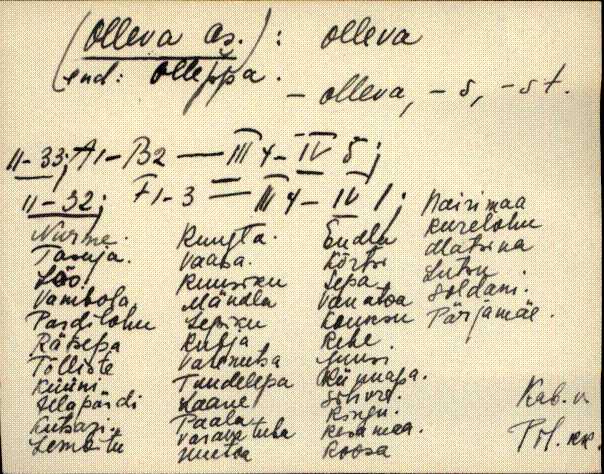 (Olleva as.): olleva
(end: Olleppa.
– olleva, – s, – st.
II-33; A1-B2 — III 4 - IV 5;
II-32; F1-3 — III 4 - IV 1;
Nurme.
Tasuja.
Löo.
Vambola
Pardilohu
Rätsepa
Tölliste
Küüni
Allapärdi
Kubjasi.
Lembitu
Kungla.
Vaaba.
Kuusiku
Mändla
Lepiku
Kubja
Vatenutsa
Tuudelepa
Laane
Paala
Vasaratuba
Uuetoa
Endla
Körtsi
Sepa
Vanatoa
Kouksu
Rebe.
Juusi
Künnapa.
Sohvre.
Ringu.
Kesamaa.
Roosa
Nairimaa
Kurelohu
Matsina
Lutsu
Soldani.
Pärjamäe.
Kab. v.
Pil. kk.